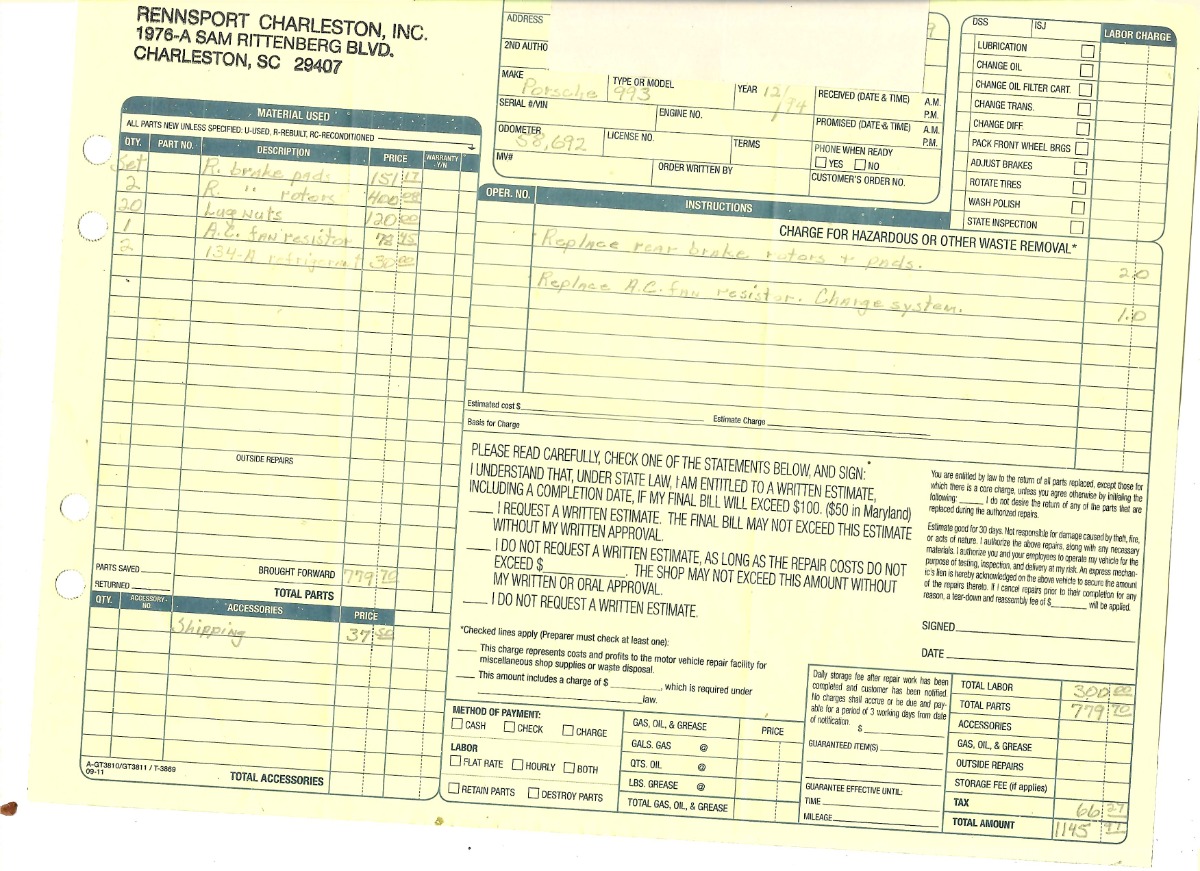 RENNSPORT CHARLESTON, INC.
1976-A SAM RITTENBERG BLVD.
CHARLESTON, SC 29407
MATERIAL USED
ALL PARTS NEW UNLESS SPECIFIED: U-USED, R-REBUILT, RC-RECONDITIONED
QTY. PART NO. DESCRIPTION PRICE WARRANTY Y/N
Set R. brake pads 151 17
2 R. " rotors 400 00
20 Lug nuts 120 00
1 A.C. fan resistor 78 45
2 134-A refrigerant 30 00
OUTSIDE REPAIRS
PARTS SAVED
RETURNED
BROUGHT FORWARD 779 70
TOTAL PARTS
QTY. ACCESSORY NO. ACCESSORIES PRICE
Shipping 37 50
A-GT3810/GT3811 / T-3869
09-11
TOTAL ACCESSORIES
ADDRESS
2ND AUTHO
MAKE Porsche
TYPE OR MODEL 993
YEAR 12/94
RECEIVED (DATE & TIME) A.M. P.M.
SERIAL #/VIN
ENGINE NO.
PROMISED (DATE & TIME) A.M. P.M.
ODOMETER 58,692
LICENSE NO.
TERMS
PHONE WHEN READY
YES NO
MV#
ORDER WRITTEN BY
CUSTOMER'S ORDER NO.
DSS ISJ LABOR CHARGE
LUBRICATION
CHANGE OIL
CHANGE OIL FILTER CART.
CHANGE TRANS.
CHANGE DIFF.
PACK FRONT WHEEL BRGS
ADJUST BRAKES
ROTATE TIRES
WASH POLISH
STATE INSPECTION
OPER. NO. INSTRUCTIONS
CHARGE FOR HAZARDOUS OR OTHER WASTE REMOVAL*
Replace rear brake rotors + pads. 2.0
Replace A.C. fan resistor. Charge system. 1.0
Estimated cost $ Estimate Charge
Basis for Charge
PLEASE READ CAREFULLY, CHECK ONE OF THE STATEMENTS BELOW, AND SIGN:*
I UNDERSTAND THAT, UNDER STATE LAW, I AM ENTITLED TO A WRITTEN ESTIMATE,
INCLUDING A COMPLETION DATE, IF MY FINAL BILL WILL EXCEED $100. ($50 in Maryland)
I REQUEST A WRITTEN ESTIMATE. THE FINAL BILL MAY NOT EXCEED THIS ESTIMATE
WITHOUT MY WRITTEN APPROVAL.
I DO NOT REQUEST A WRITTEN ESTIMATE, AS LONG AS THE REPAIR COSTS DO NOT
EXCEED $ . THE SHOP MAY NOT EXCEED THIS AMOUNT WITHOUT
MY WRITTEN OR ORAL APPROVAL.
I DO NOT REQUEST A WRITTEN ESTIMATE.
*Checked lines apply (Preparer must check at least one):
This charge represents costs and profits to the motor vehicle repair facility for
miscellaneous shop supplies or waste disposal.
This amount includes a charge of $ , which is required under
law.
You are entitled by law to the return of all parts replaced, except those for
which there is a core charge, unless you agree otherwise by initialing the
following: I do not desire the return of any of the parts that are
replaced during the authorized repairs.
Estimate good for 30 days. Not responsible for damage caused by theft, fire,
or acts of nature. I authorize the above repairs, along with any necessary
materials. I authorize you and your employees to operate my vehicle for the
purpose of testing, inspection, and delivery at my risk. An express mechan-
ic's lien is hereby acknowledged on the above vehicle to secure the amount
of the repairs thereto. If I cancel repairs prior to their completion for any
reason, a tear-down and reassembly fee of $ will be applied.
SIGNED
DATE
METHOD OF PAYMENT:
CASH CHECK CHARGE
LABOR
FLAT RATE HOURLY BOTH
RETAIN PARTS DESTROY PARTS
GAS, OIL, & GREASE PRICE
GALS. GAS @
QTS. OIL @
LBS. GREASE @
TOTAL GAS, OIL, & GREASE
Daily storage fee after repair work has been
completed and customer has been notified.
No charges shall accrue or be due and pay-
able for a period of 3 working days from date
of notification.
$
GUARANTEED ITEM(S)
GUARANTEE EFFECTIVE UNTIL:
TIME
MILEAGE
TOTAL LABOR 300 00
TOTAL PARTS 779 70
ACCESSORIES
GAS, OIL, & GREASE
OUTSIDE REPAIRS
STORAGE FEE (if applies)
TAX 66 27
TOTAL AMOUNT 1145 97